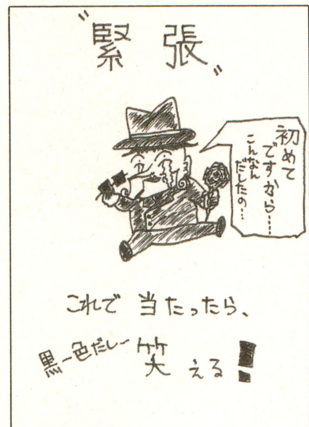 〝緊張〟
初めて
ですから…
こんなん
だしたの…
これで当たったら、
黒一色だしー
笑える!